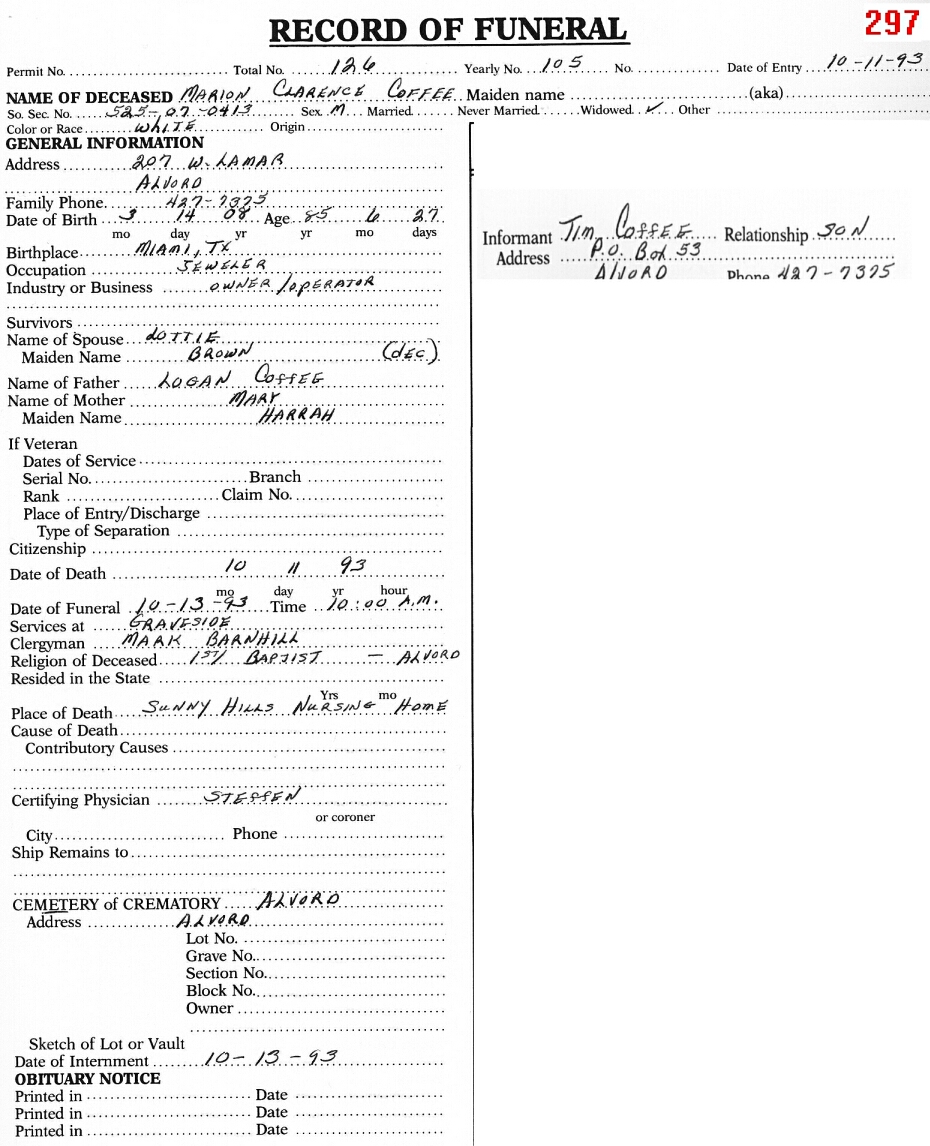 297
RECORD OF FUNERAL
Permit No. Total No. 126 Yearly No. 105 No. Date of Entry 10-11-93
NAME OF DECEASED MARION CLARENCE COFFEE Maiden name (aka)
So. Sec. No. 525-07-0413 Sex M Married Never Married Widowed ✓ Other
Color or Race WHITE Origin
GENERAL INFORMATION
Address 207 W. LAMAR
ALVORD
Family Phone 427-7375
Date of Birth 3 14 08 Age 85 6 27
mo day yr yr mo days
Birthplace MIAMI, TX
Occupation JEWELER
Industry or Business OWNER/OPERATOR
Survivors
Name of Spouse LOTTIE
Maiden Name BROWN (DEC)
Name of Father LOGAN COFFEE
Name of Mother MARY
Maiden Name HARRAH
If Veteran
Dates of Service
Serial No. Branch
Rank Claim No.
Place of Entry/Discharge
Type of Separation
Citizenship
Date of Death 10 11 93
mo day yr hour
Date of Funeral 10-13-93 Time 10:00 A.M.
Services at GRAVESIDE
Clergyman MARK BARNHILL
Religion of Deceased 1ST BAPTIST - ALVORD
Resided in the State
Yrs mo
Place of Death SUNNY HILLS NURSING HOME
Cause of Death
Contributory Causes
Certifying Physician STEFFEN
or coroner
City Phone
Ship Remains to
CEMETERY of CREMATORY ALVORD
Address ALVORD
Lot No.
Grave No.
Section No.
Block No.
Owner
Sketch of Lot or Vault
Date of Internment 10-13-93
OBITUARY NOTICE
Printed in Date
Printed in Date
Printed in Date
Informant TIM COFFEE Relationship SON
Address P.O. Box 53
ALVORD Phone 427-7375